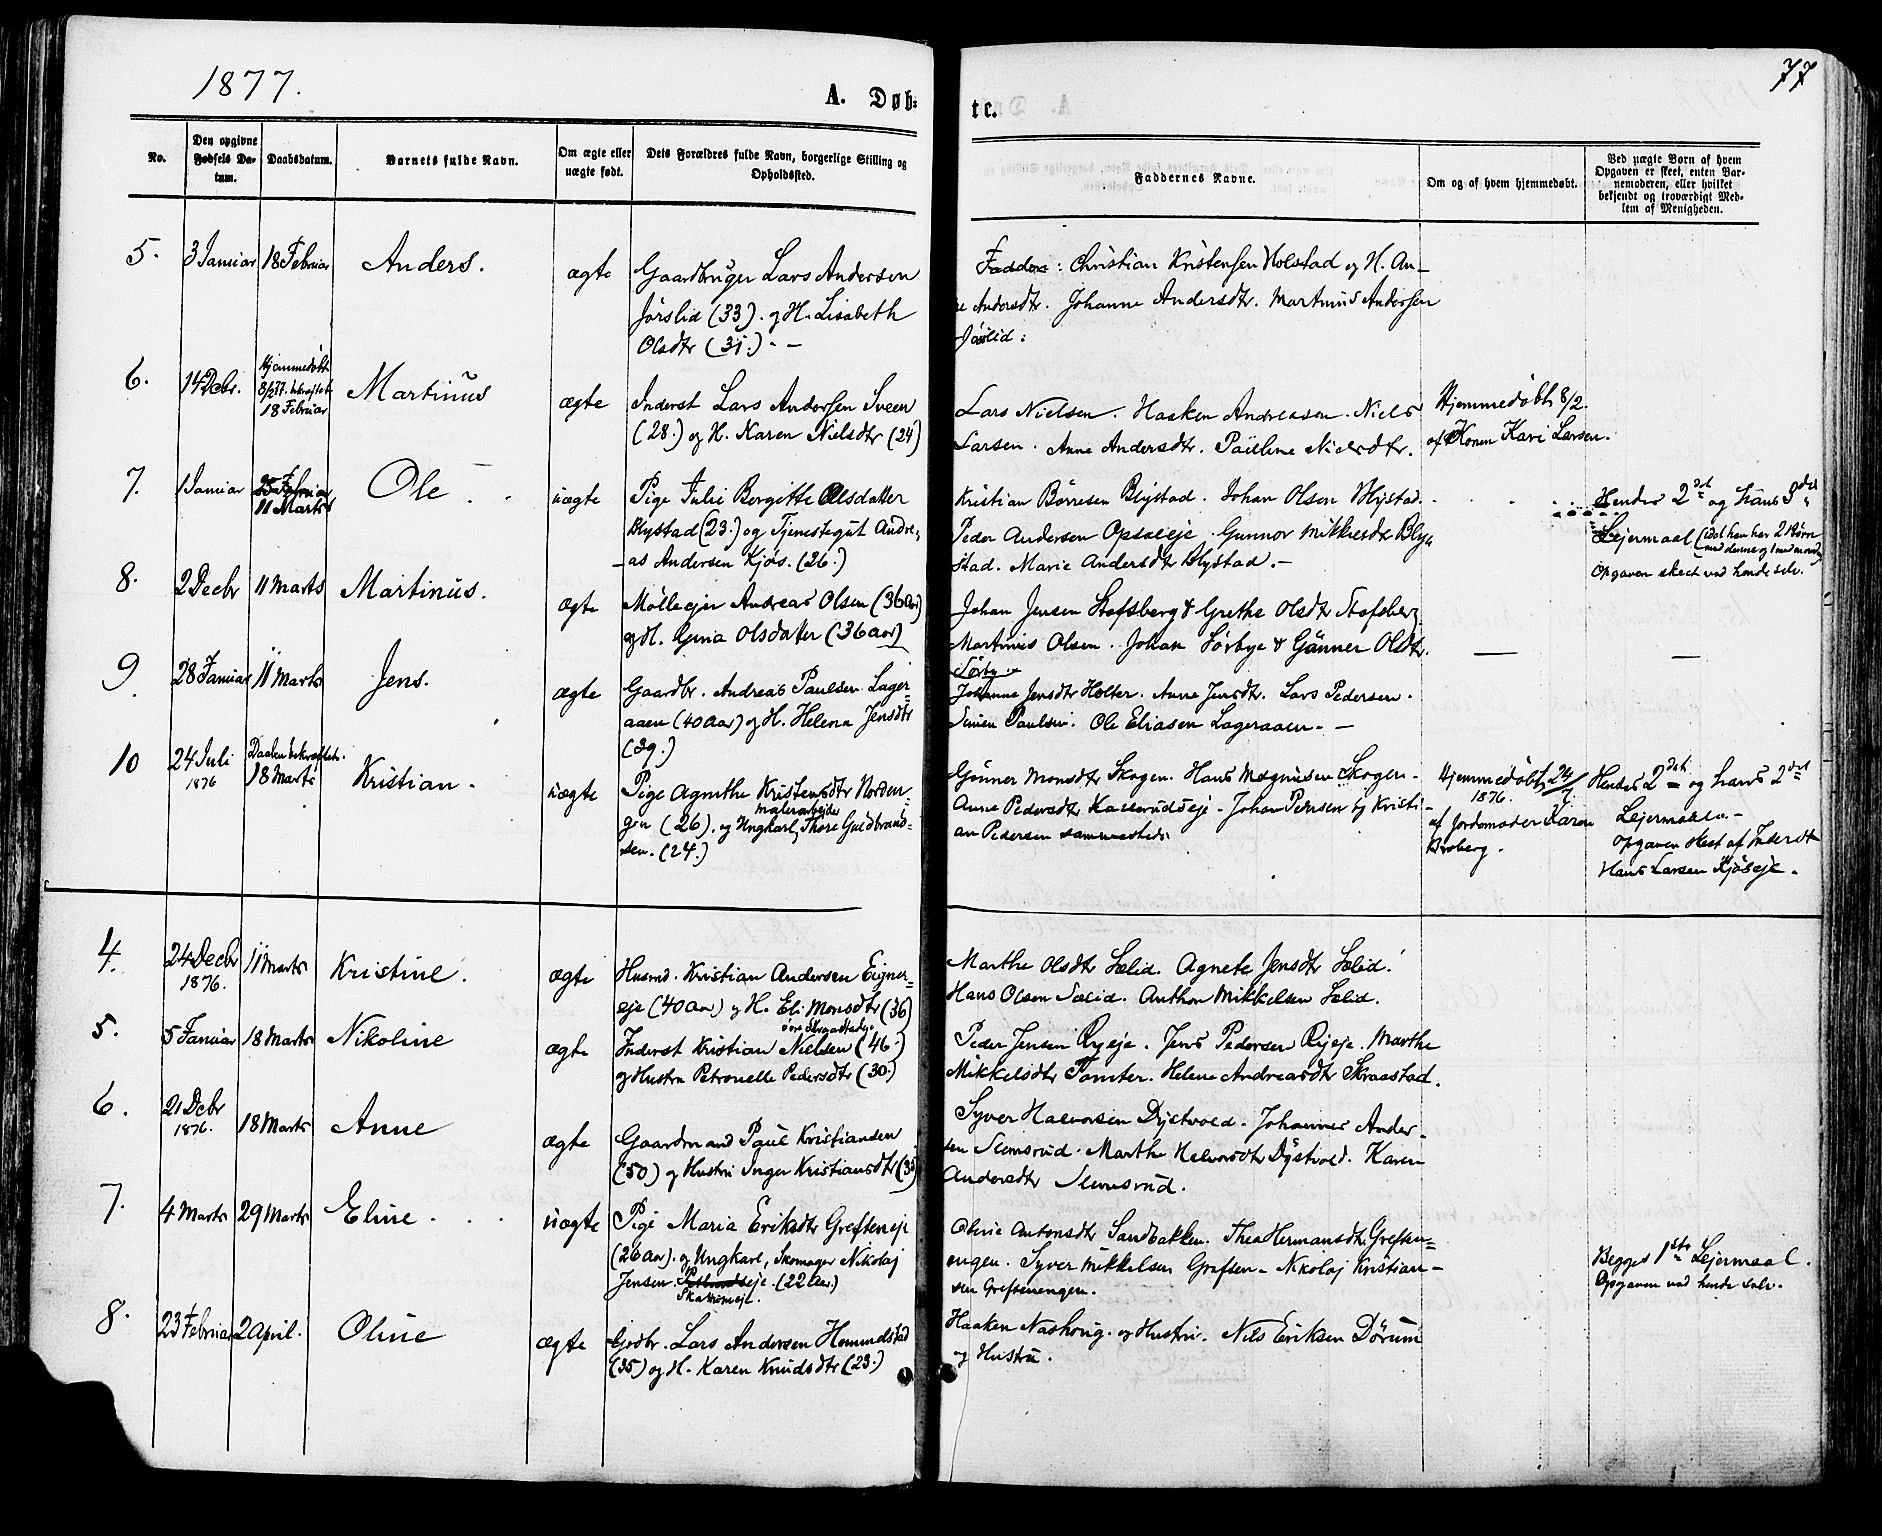 1877.
77
A. Døb=
tc.
No.
Den opgivne Fødsels Da-tum.
Daabsdatum.
Barnets fulde Navn.
Om ægte eller uægte født.
Dets Forældres fulde Navn, borgerlige Stilling og Opholdssted.
Faddernes Navne.
Om og af hvem hjemmedøbt.
Ved uægte Børn af hvem
Opgaven er skeet, enten Bar-
nemoderen, eller hvilket
bekjendt og troværdigt Med-
lem af Menigheden.
5. 3 Januar 18 Februar Anders. ægte
Gaardbruger Lars Andersen
Jørslid (33). og H. Lisabeth
Olsdtr (31.) -
Faddere: Christian Kristensen Holstad og H. An-
ne Andersdtr. Johanne Andersdtr. Martinus Andersen
Jørslid:
6. 14 Decbr. Hjemmedøbt
8/2 77. bekræftet
18 Februar Martinus ægte
Inderst Lars Andersen Sveen
(28.) og H. Karen Nielsdtr (24)
Lars Nielsen. Haaken Andreasen. Niels
Larsen. Anne Andersdtr. Pauline Nielsdtr.
Hjemmedøbt 8/2.
af Konen Kari Larsen.
7. 1 Januar 25 Februar
11 Marts Ole uægte
Pige Julie Borgitte Olsdatter
Blystad (23.) og Tjenestegut Andre-
as Andersen Kjøs. (26.)
Kristian Børresen Blystad. Johan Olsen Blystad.
Peder Andersen Opsaleje. Gunnor Mikkelsdtr Bly-
stad. Marie Andersdtr Blystad. -
Hendes 2det og hans 3det
Lejermaal (idet han har 2 Børn
med denne og 1 med
Opgaven skeet ved hende selv.
8. 2 Decbr 11 Marts Martinus. ægte
Mølleejer Andreas Olsen (36 Aar)
og H. Gina Olsdatter (36 aar)
Johan Jensen Stafsberg & Grethe Olsdtr Stafsberg.
Martinus Olsen. Johan Sørbye & Gunner Olsdtr.
Sørby
9. 28 Januar 11 Marts Jens. ægte
Gaardbr. Andreas Paulsen Lager-
aaen (40 Aar) og H. Helena Jensdtr
(39.)
Johanne Jensdtr Holter. Anne Jensdtr. Lars Pedersen.
Simen Paulsen. Ole Eliasen Lageraaen. -
10 24 Juli
1876 Daaben bekræftet.
18 Marts Kristian. uægte
Pige Agnethe Kristensdtr Norden-
gen (26). og Ungkarl, malerarbeider Thore Guldbrand-
sen. (24.)
Gunner Monsdtr Skogen. Hans Magnusen Skogen.
Anne Pedersdtr Kallerudseje. Johan Pedersen og Kristi-
an Pedersen sammesteds
Hjemmedøbt 24/7
1876.
af Jordemoder Karen
Broberg.
Hendes 2det og hans 2det
Lejermaal. -
Opgaven skeet af Inderst
Hans Larsen Kjøseje.
4. 24 Decbr
1876. 11 Marts Kristine. ægte
Husmd. Kristian Andersen Eigner-
eje (40 Aar) og H. Eli Monsdtr (36)
Marthe Olsdtr Lælid. Agnete Jensdtr Lælid.
Hans Olsen Lælid. Anthon Mikkelsen Lælid.
5. 5 Januar 18 Marts Nikoline ægte
Inderst Kristian Nielsen (46.)
og Hustru Petronelle Pedersdtr (30.)
Peder Jensen Ryeje. Jens Pedersen Ryeje. Marthe
Mikkelsdtr Tomter. Helene Andreasdtr Skraastad.
6. 21 Dcbr
1876. 18 Marts Anne ægte
Gaardmand Paul Kristiansen
(50) og Hustru Inger Kristiansdtr
Syver Halvorsen Dystvold. Johannes Ander-
sen Slemsrud. Marthe Halvorsdtr Dystvold. Karen
Andersdtr Slemsrud.
7. 4 Marts 29 Marts Eline uægte
Pige Maria Eriksdtr Grefseneje
(26 aar). og Ungkarl, Skomager Nikolaj
Jensen (22 Aar.)
Oline Antonsdtr Sandbakken. Thea Hermansdtr Grefsen-
engen. Syver Mikkelsen Grefsen. Nikolaj Kristian-
sen Grefsenengen.
Begges 1ste Lejermaal.
Opgaven ved hende selv.
8. 23 Februar 2 April. Oline ægte
Gdbr. Lars Andersen Homundstad
(35) og H. Karen Knudsdtr (23.)
Haaken Nashoug og Hustru. Nils Eriksen Dørum
og Hustru.